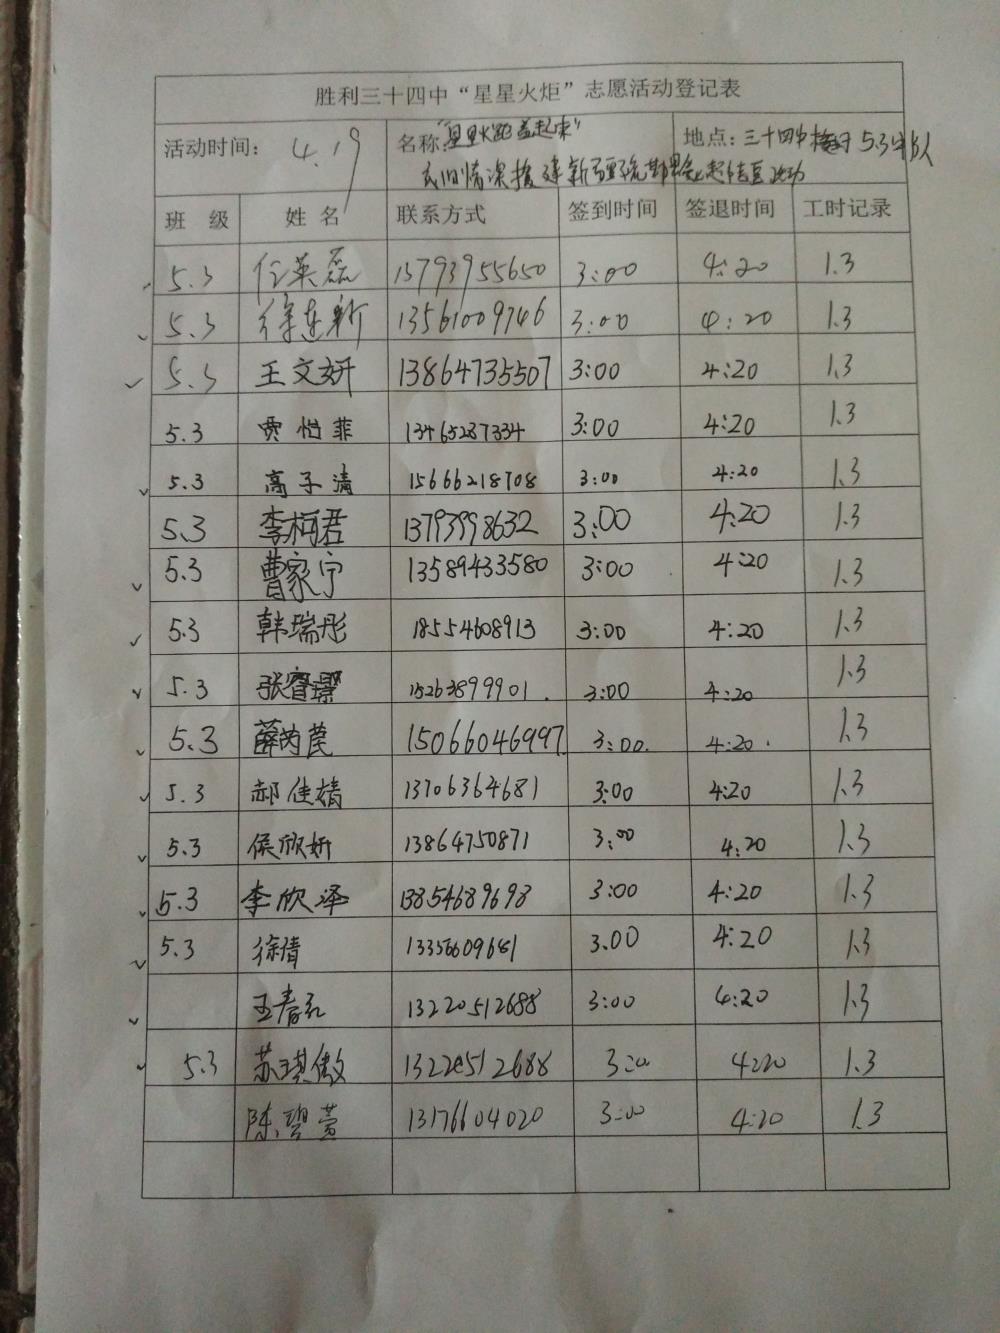 胜利三十四中“星星火炬”志愿活动登记表
活动时间： 4.19 名称 地点：三十四中 5.3中队
班 级 姓 名 联系方式 签到时间 签退时间 工时记录
5.3 任英磊 13793955650 3:00 4:20 1.3
5.3 徐连新 13561009746 3:00 4:20 1.3
5.3 王文妍 13864735507 3:00 4:20 1.3
5.3 贾怡菲 13465287334 3:00 4:20 1.3
5.3 高子清 15666218708 3:00 4:20 1.3
5.3 李柯君 13793998632 3:00 4:20 1.3
5.3 曹家宁 13589433580 3:00 4:20 1.3
5.3 韩瑞彤 18554608913 3:00 4:20 1.3
5.3 张睿璟 15263899901 3:00 4:20 1.3
5.3 薛芮苠 15066046997 3:00 4:20 1.3
5.3 郝佳婧 13706364681 3:00 4:20 1.3
5.3 侯欣妍 13864750871 3:00 4:20 1.3
5.3 李欣泽 13854689698 3:00 4:20 1.3
5.3 徐倩 13356609681 3:00 4:20 1.3
王春红 13220512688 3:00 4:20 1.3
5.3 苏琪傲 13220512688 3:00 4:20 1.3
陈碧萱 13176604020 3:00 4:20 1.3